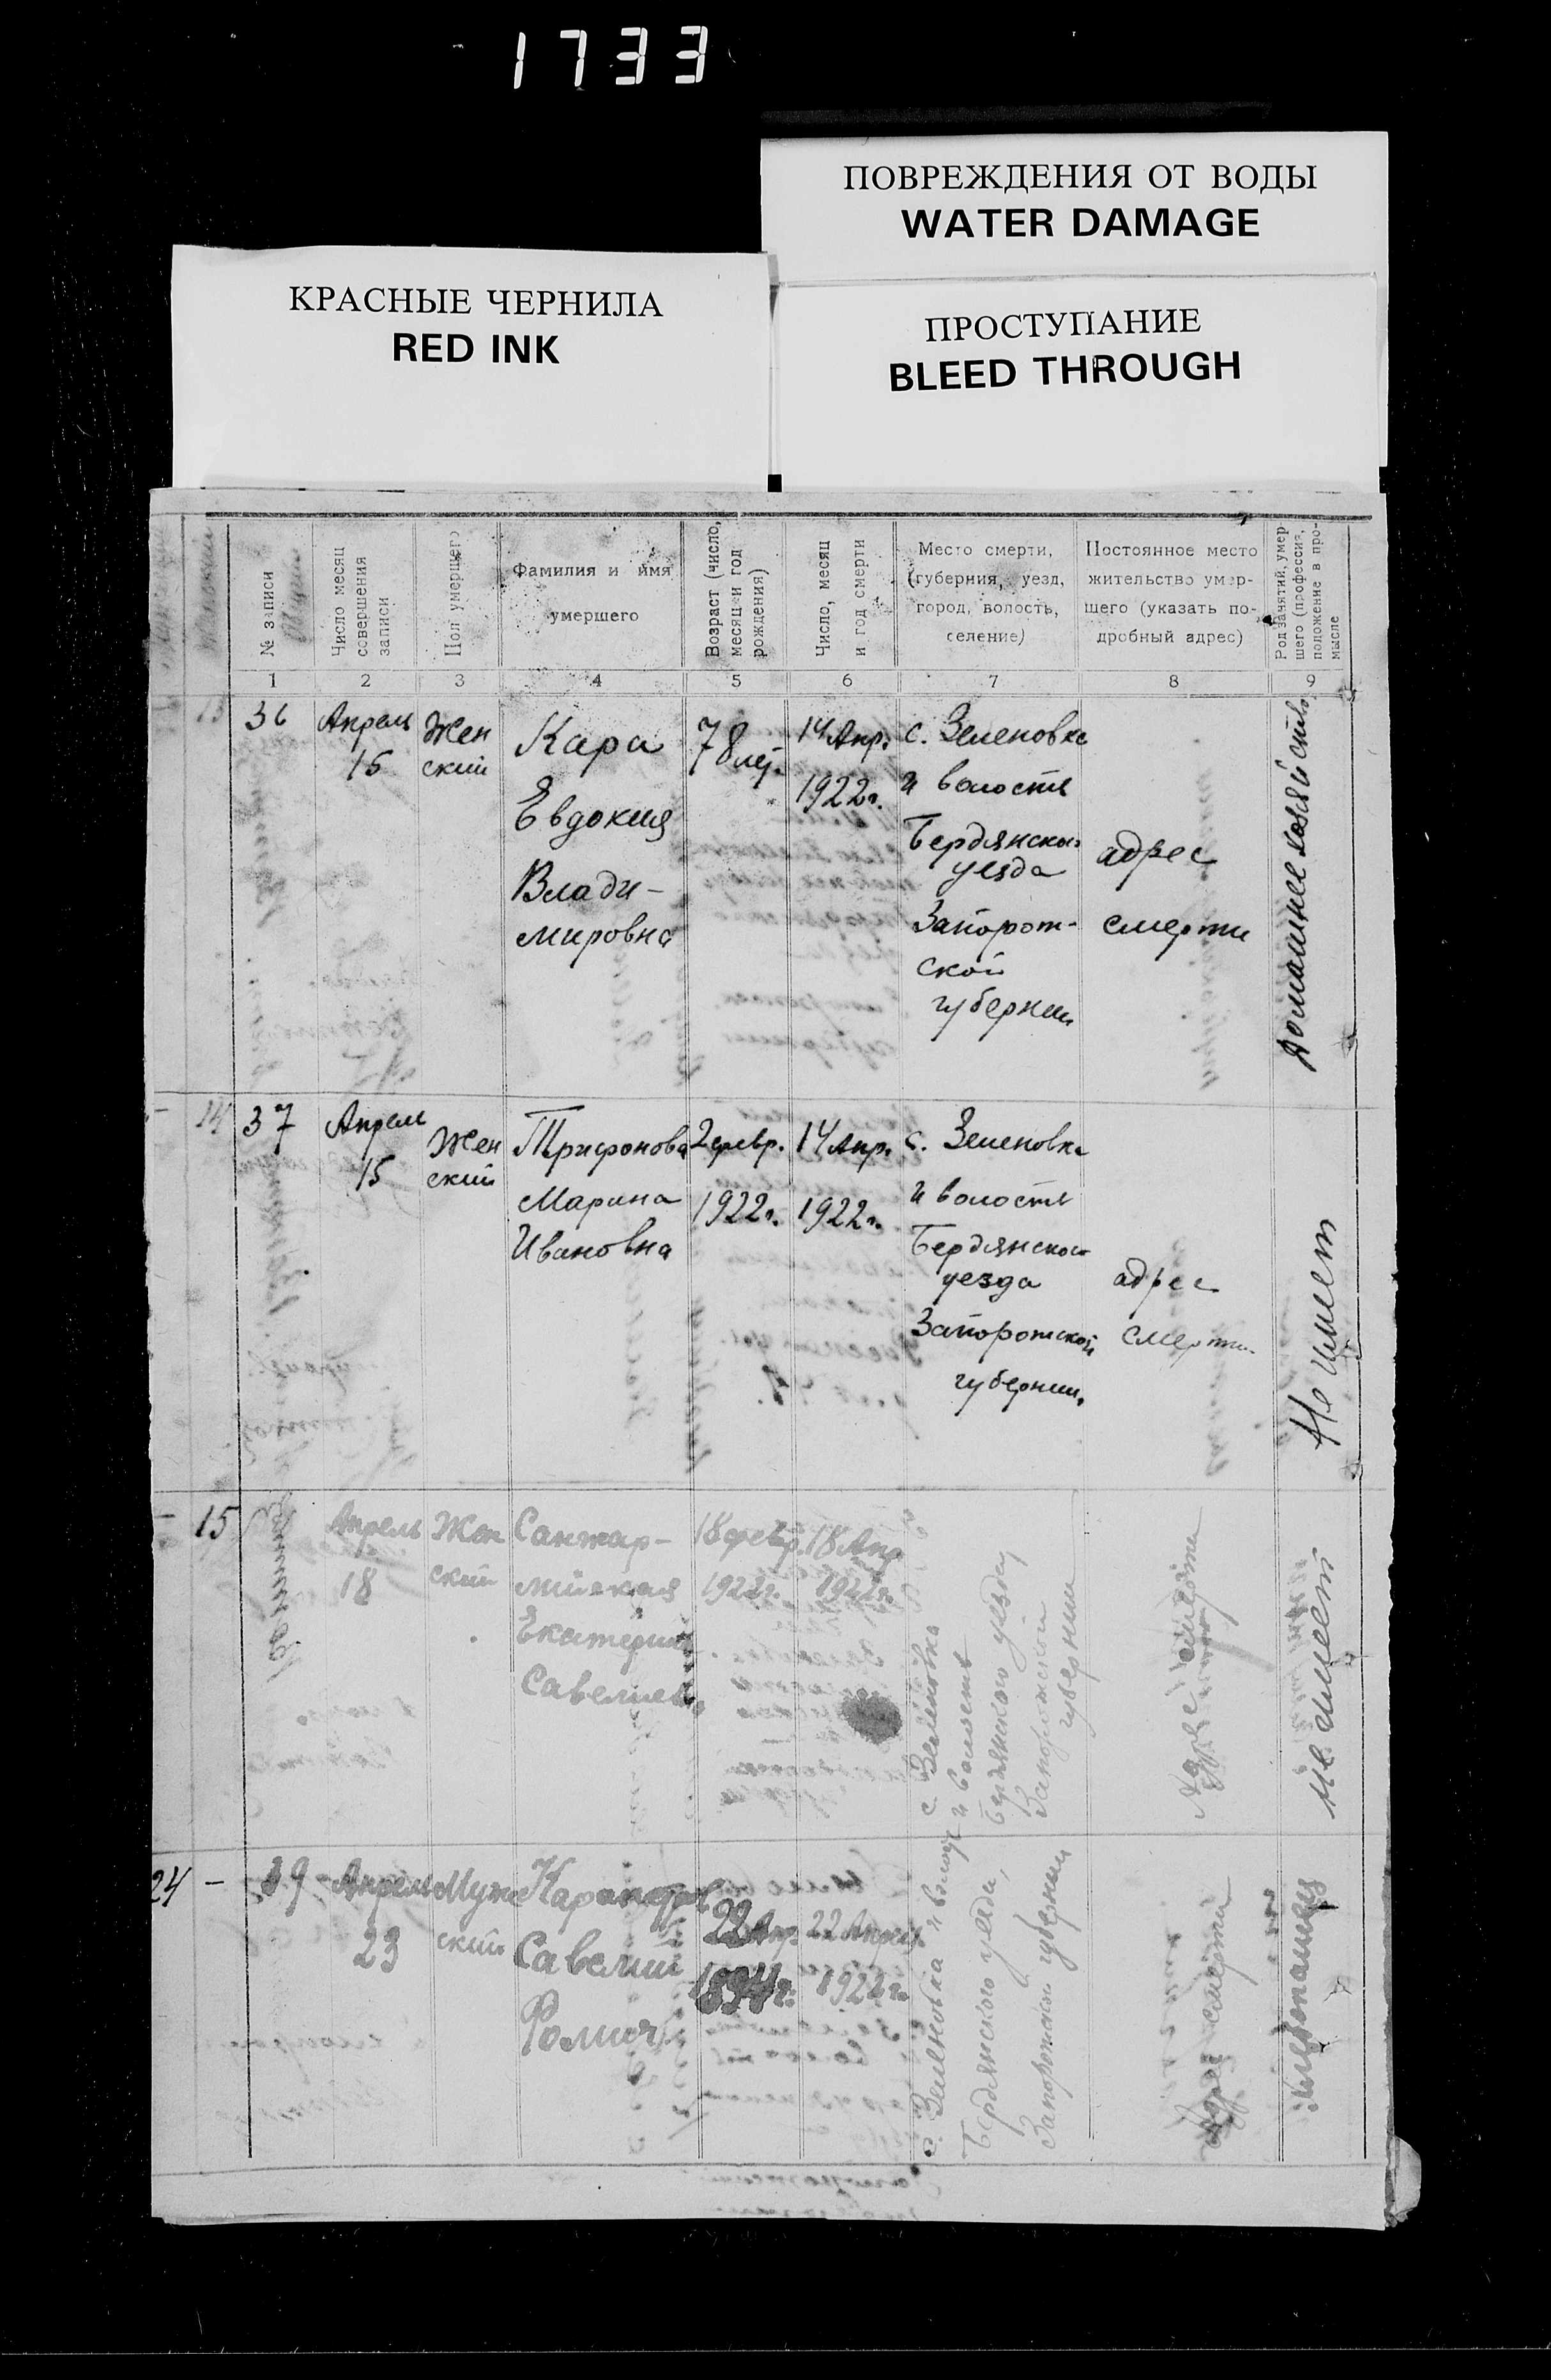 1733
ПОВРЕЖДЕНИЯ ОТ ВОДЫ
WATER DAMAGE
КРАСНЫЕ ЧЕРНИЛА
RED INK
ПРОСТУПАНИЕ
BLEED THROUGH
№ записи
Число месяц
совершения
записи
Пол умершего
Фамилия и имя
умершего
Возраст (число,
месяц и год
рождения)
Число, месяц
и год смерти
Место смерти,
(губерния, уезд,
город, волость,
селение)
Постоянное место
жительство умер-
шего (указать по-
дробный адрес)
Род занятий, умер
шего (профессия,
положение в про-
мысле
1 2 3 4 5 6 7 8 9
13
36
Апрель
15
Жен
ский
Кара
Евдокия
Влади-
мировна
78 лет.
14 Апр.
1922г.
с. Зеленовка
и волость
Бердянского
уезда
Запорож-
ской
губернии
адрес
смерти
Домашнее хозяйство
14
37
Апрель
15
Жен
ский
Трифонова
Марина
Ивановна
2 февр.
1922г.
14 Апр.
1922г.
с. Зеленовка
и волость
Бердянского
уезда
Запорожской
губернии.
адрес
смерти
Не имеет
15
Апрель
18
Жен
ский
Екатерина
18 февр.
1922г.
18 Апр
1922г.
с. Зеленовка
и волость
Бердянского уезда
Запорожской
губернии
Адрес смерти
Не имеет
24 - 39
Апрель
23
Муж
ский
Савелий
Фомич
22 Апр.
1894г.
22 Апрель
1922г.
с. Зеленовка и волость
Бердянского уезда,
Запорожской губернии
Адрес смерти
Хлебопашец